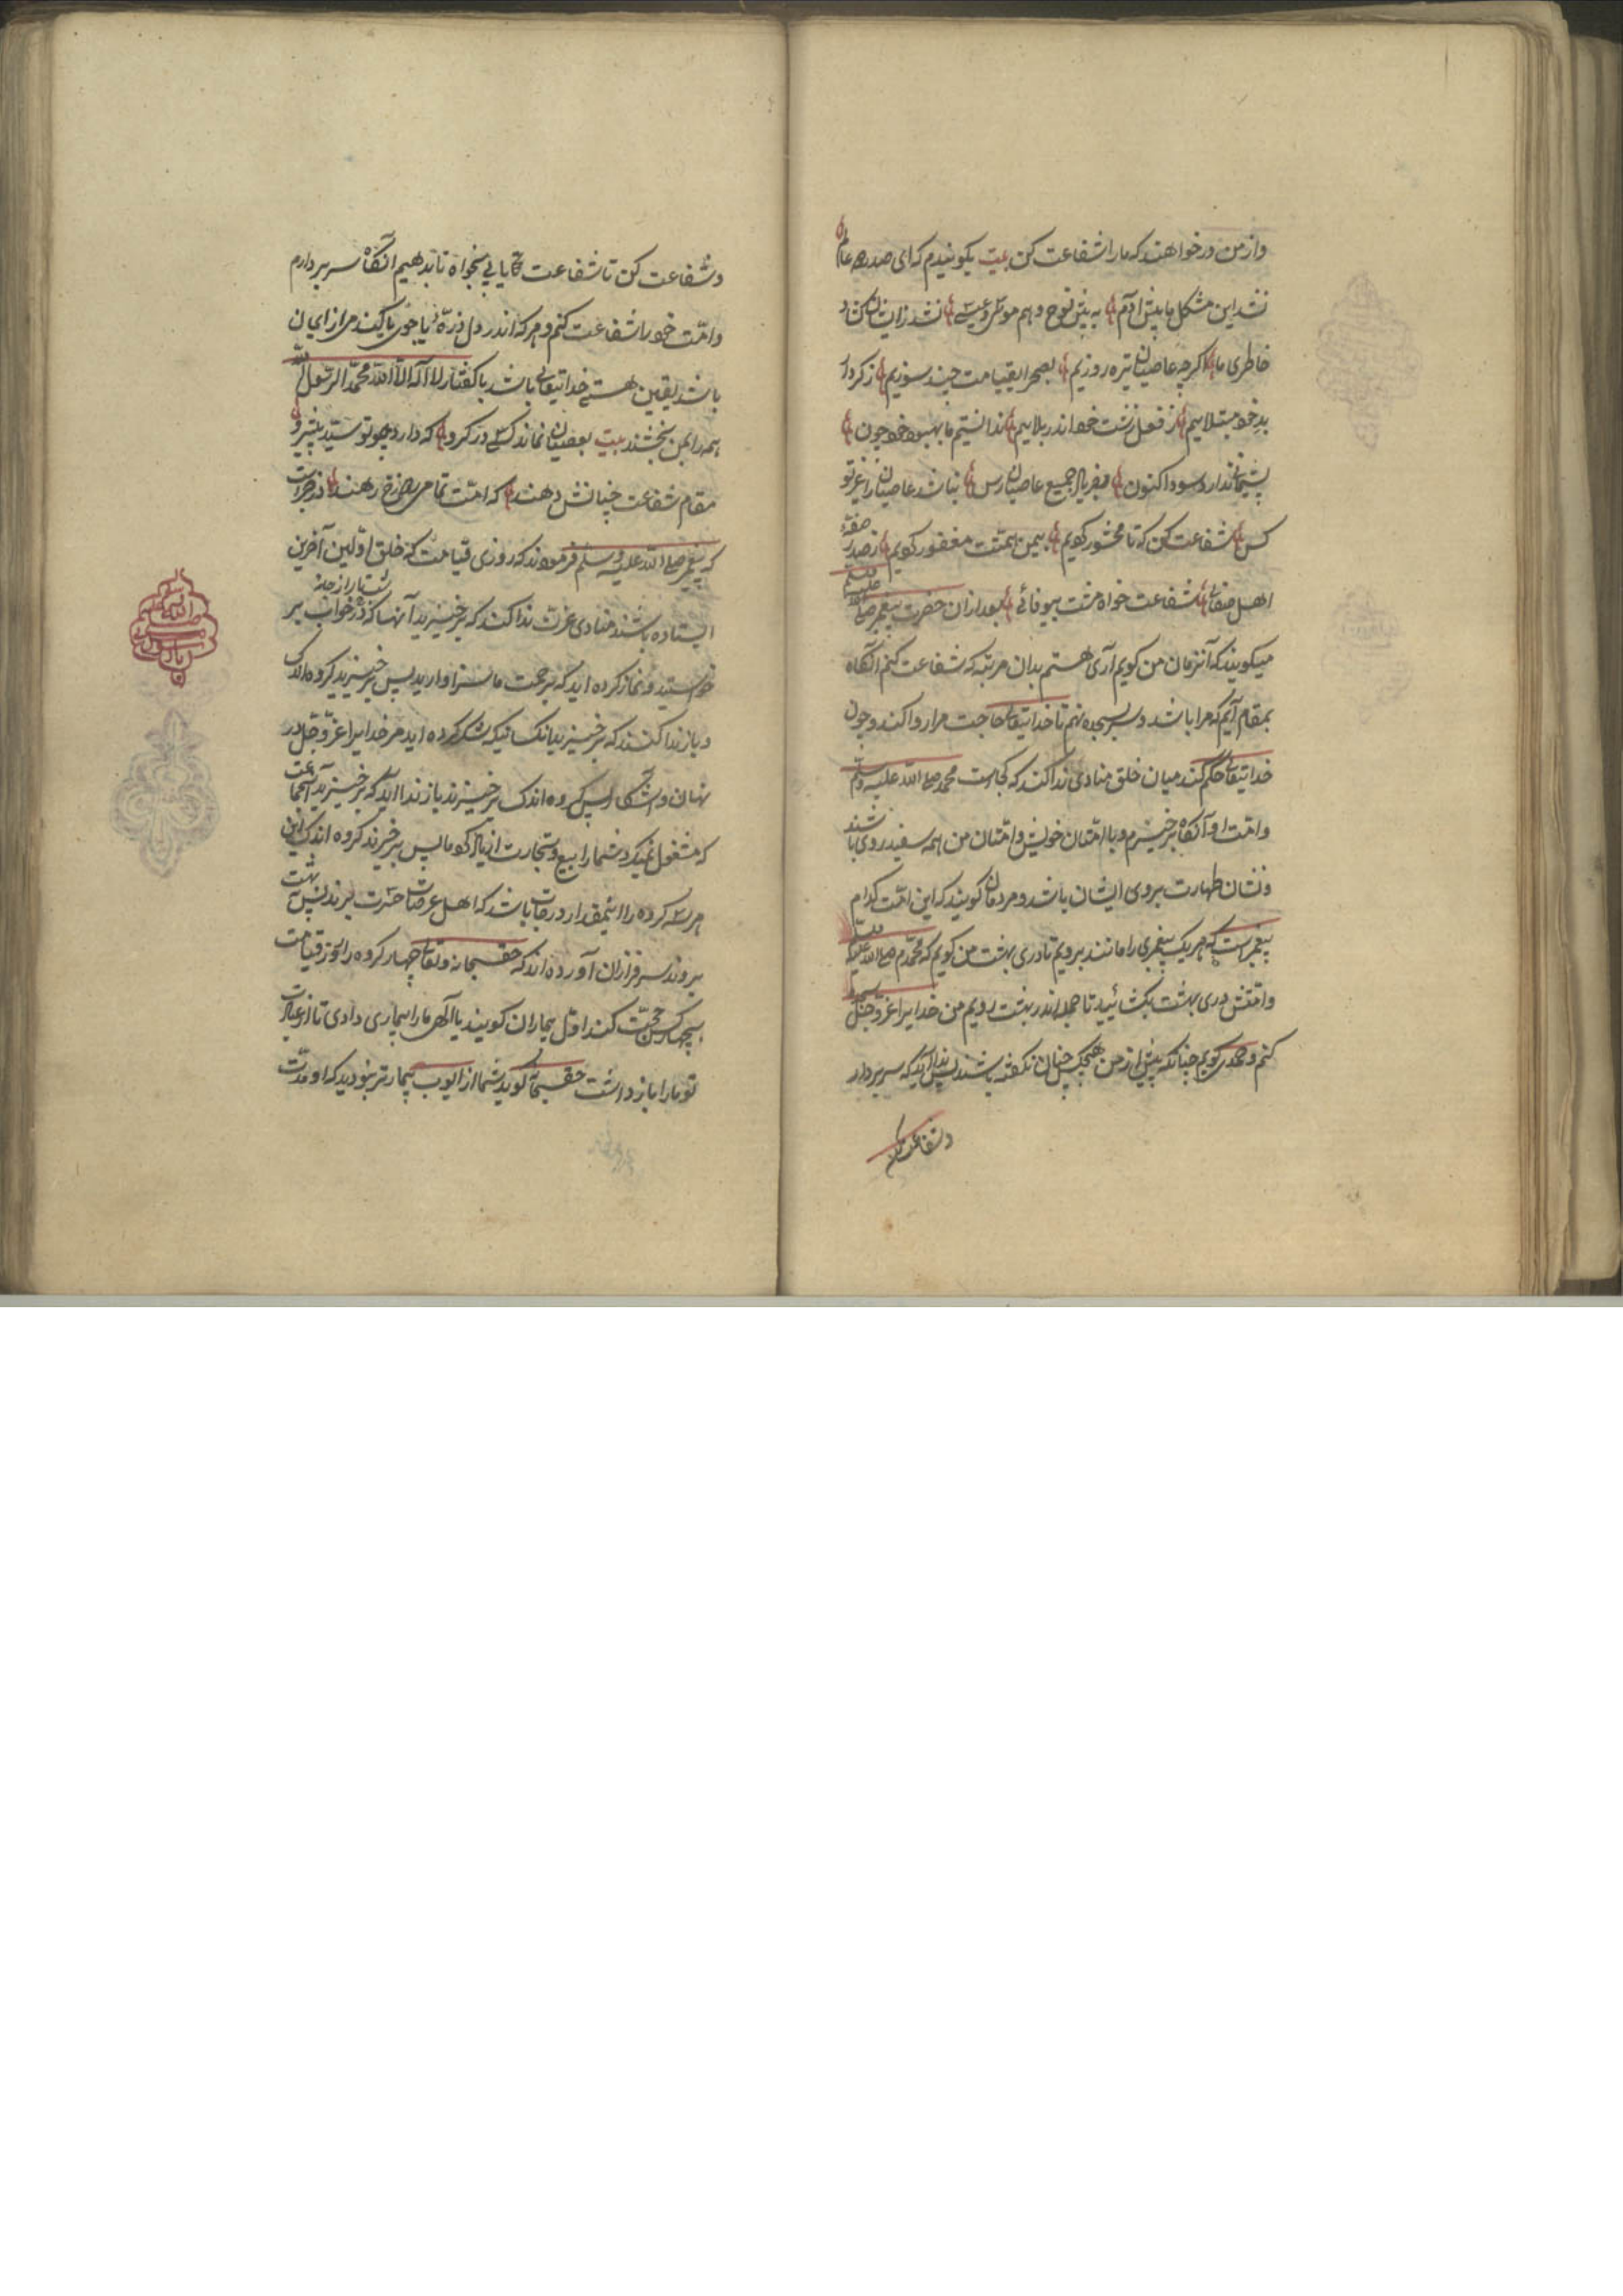 وازمن درخواهند که مارا شفاعت کن بیت بکویندم که ای صدر همه عالم
نشد این مشکل ما پیش آدم به پیش نوح و هم موسی و عیسی نشد زایشان
خاطری ما اکرچه عاصیان تیره روزیم بصحرای قیامت چند سوزیم ز کردار
بد خود مبتلاییم ز فعل زشت خود اندر بلاییم ندانستیم ما بهبود خود چون
پشیمانی ندارد سود اکنون بفریاد جمیع عاصیان رس نباشد عاصیان را غیر تو
کس شفاعت کن که تا محشور کویم بیمن همتت مغفور کویم از صدر صفه
اهل صفائی شفاعت خواه مشت بیوفائی بعد ازان حضرت پیغمبر صلی الله علیه وسلم
میکویند که آنزمان من کویم آری هستم بدان مرتبه که شفاعت کنم انکاه
بمقام آیم که مرا باشد و سر بسجده نهم تا خدایتعالی حاجت مرا روا کند و چون
خدایتعالی حکم کند میان خلق منادی ندا کند که کجاست محمد صلی الله علیه وسلم
وامت او آنکاه برخیزم و با امتان خویش و امتان من همه سفید روی باشند
و نشان طهارت بروی ایشان باشد و مردمان کویند که این امت کدام
پیغمبر است که هر یک پیغمبری را مانند برویم تا دری بهشت من کویم که محمدم صلی الله علیه وسلم
وامتش دری بهشت بکشائید تا جمله اندر بهشت رویم من خدایرا عز وجل
کنم و حمدی کویم چنانکه پیش از من هیچکس چنان نکفته باشد پس ندا آید که سر بردار
و شفاعت کن
و شفاعت کن تا شفاعت یابی بخواه تا بدهیم آنکاه سر بردارم
وامت خود را شفاعت کنم و هر که اندر دل ذره یا جوی یا کندم از ایمان
باشد یقین هستی خدایتعالی باشد با کفتار لا اله الا الله محمد الرسول الله
همه را بمن بخشند بیت بعصیان نماند کسی در کرو که دارد چو تو سید پیشرو
مقام شفاعت چنانش دهند که امت تمامی ز دوزخ رهند در خبر است
که پیغمبر صلی الله علیه وسلم فرمودند که روزی قیامت که خلق اولین آخرین
ایستاده باشند منادی عزت ندا کند که برخیزید آنها که در شب تار از جامه خواب بر
خواستید و نماز کرده اید که برحمت ما سزاوارید پس برخیزید کروه اندک
و باز ندا کنند که برخیزید آنکسانیکه شکر کرده اید مر خدایرا عز وجل در
نهان و آشکارا پس کروه اندک برخیزند باز ندا آید که برخیزید آنجماعت
که مشغول نمیکرد شما را بیع و تجارت از یاد کو ما پس برخیزند کروه اندک این
هر سه کروه را اینمقدار درجات باشد که اهل عرصات حسرت برند پس بهشت
بروند سرفرازان آورده اند که حق سبحانه وتعالی چهار کروه را روز قیامت
بچهار کس حجت کند اول بیماران کویند یا الهی ما را بیماری دادی تا از عبادت
تو ما را باز داشت حقسبحانه کوید شما از ایوب بیمارتر نبودید که او مدت